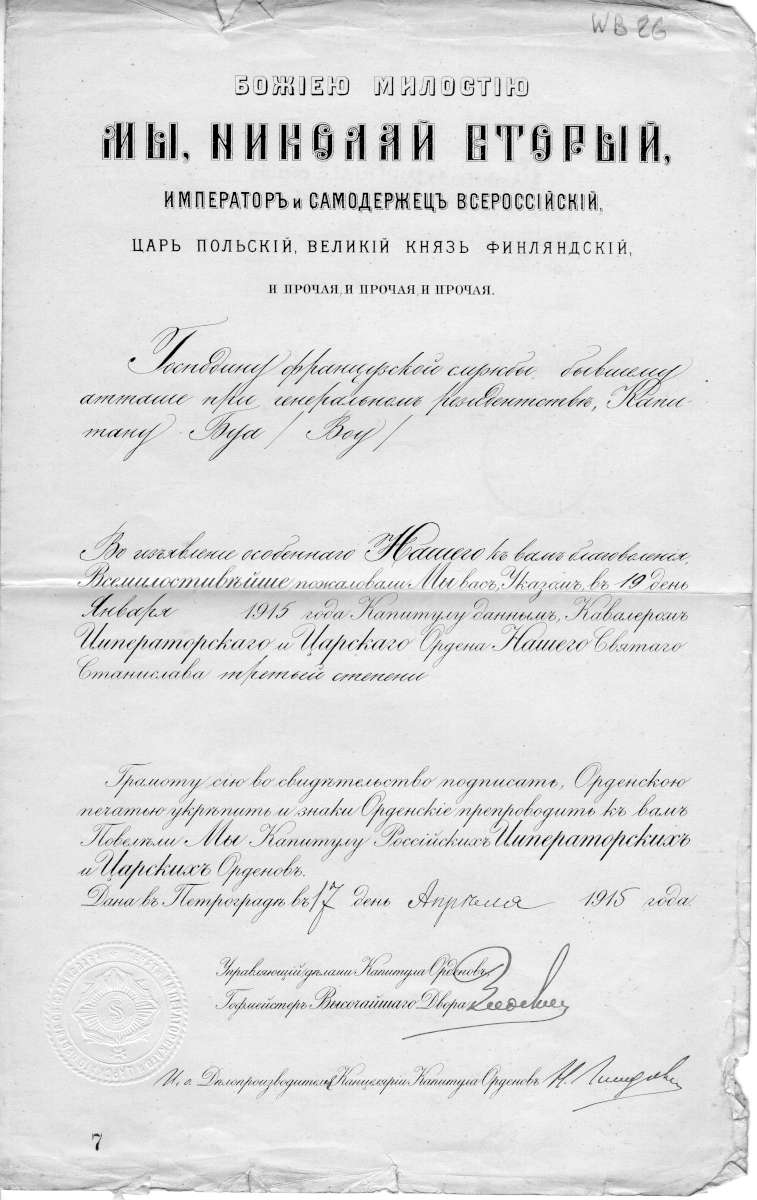 WB 26
БОЖІЕЮ МИЛОСТІЮ
МЫ, НИКОЛАЙ ВТОРЫЙ,
ИМПЕРАТОРЪ и САМОДЕРЖЕЦЪ ВСЕРОССІЙСКІЙ,
ЦАРЬ ПОЛЬСКІЙ, ВЕЛИКІЙ КНЯЗЬ ФИНЛЯНДСКІЙ,
И ПРОЧАЯ, И ПРОЧАЯ, И ПРОЧАЯ.
Господину французской службы бывшему
атташе при генеральномъ резидентствѣ, Капи-
тану Буа / Bou /
Во изъявленіе особеннаго Нашего къ вамъ благоволенія,
Всемилостивѣйше пожаловали Мы васъ, Указомъ, въ 19 день
Января 1915 года Капитулу даннымъ, Кавалеромъ
Императорскаго и Царскаго Ордена Нашего Святаго
Станислава третьей степени
Грамоту сію во свидѣтельство подписать, Орденскою
печатью укрѣпить и знаки Орденскіе препроводить къ вамъ
Повелѣли Мы Капитулу Россійскихъ Императорскихъ
и Царскихъ Орденовъ.
Дана въ Петроградѣ въ 17 день Апрѣля 1915 года.
Управляющій дѣлами Капитула Орденовъ,
Гофмейстеръ Высочайшаго Двора
И. о. Дѣлопроизводителя Канцеляріи Капитула Орденовъ
7